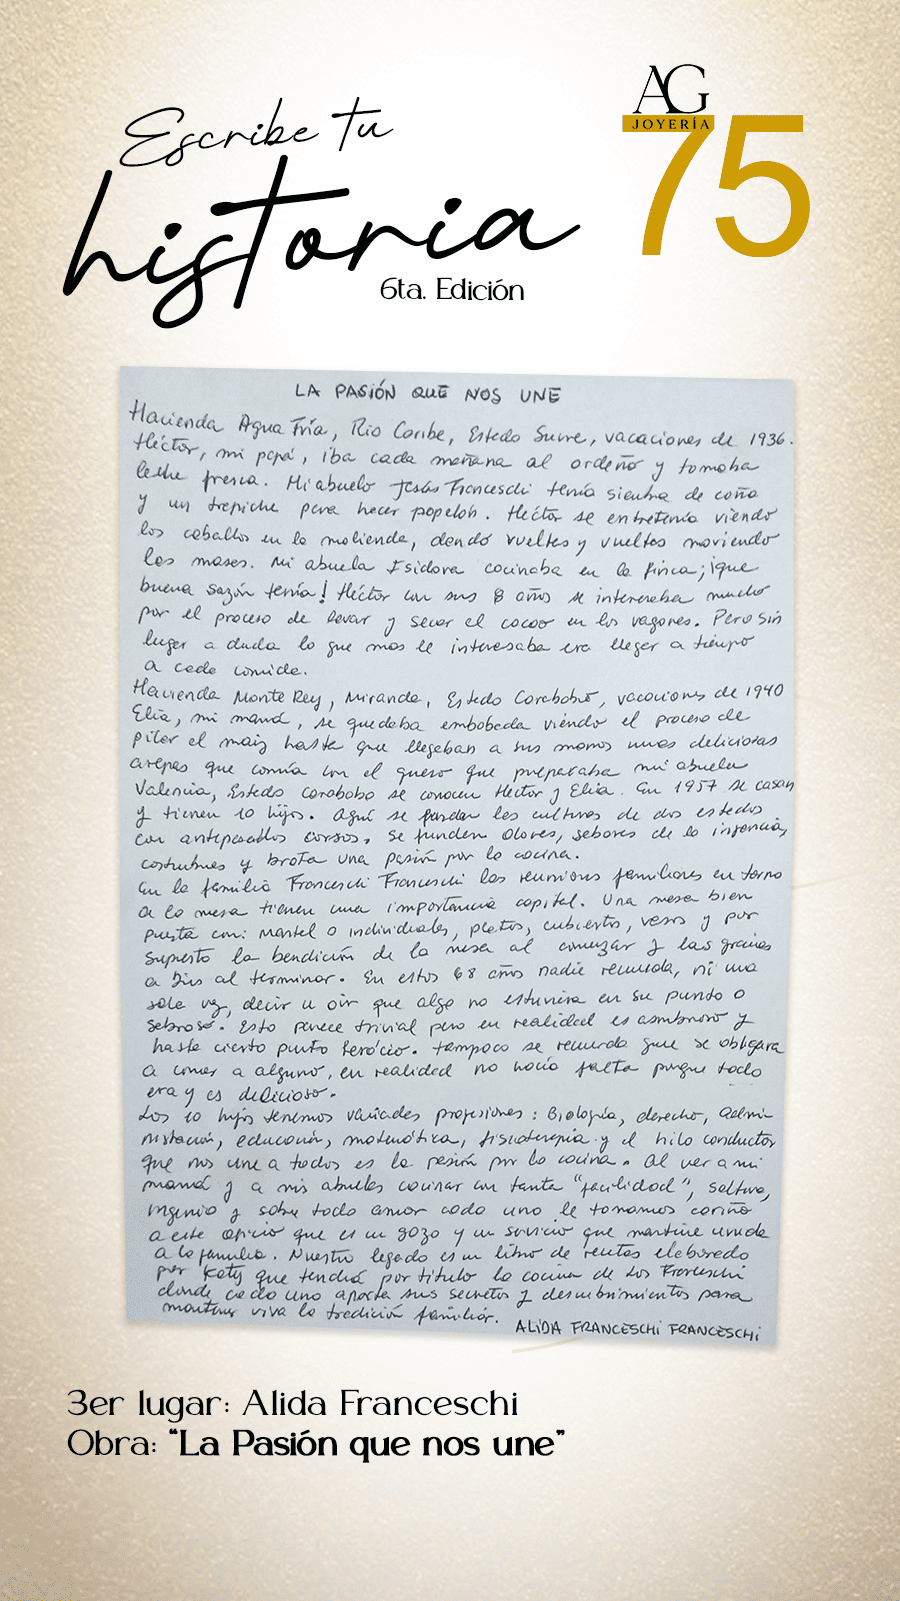 Escribe tu
historia
6ta. Edición
AG
JOYERÍA
75
LA PASIÓN QUE NOS UNE
Hacienda Agua Fría, Rio Caribe, Estado Sucre, vacaciones de 1936.
Héctor, mi papá, iba cada mañana al ordeño y tomaba
leche fresca. Mi abuelo Jesús Franceschi tenía siembra de caña
y un trapiche para hacer papelón. Héctor se entretenía viendo
los caballos en la molienda, dando vueltas y vueltas moviendo
las mases. Mi abuela Isidora cocinaba en la finca; ¡que
buena sazón tenía! Héctor con sus 8 años se interesaba mucho
por el proceso de lavar y secar el cacao en los vagones. Pero sin
lugar a duda lo que mas le interesaba era llegar a tiempo
a cada comida.
Hacienda Monte Rey, Miranda, Estado Carabobo, vacaciones de 1940
Elia, mi mamá, se quedaba embobada viendo el proceso de
pilar el maiz hasta que llegaban a sus manos unas deliciosas
arepas que comía con el queso que preparaba mi abuela
Valencia, Estado Carabobo se conocen Héctor y Elia. En 1957 se casan
y tienen 10 hijos. Aquí se funden las culturas de dos estados
con antepasados corsos. Se funden olores, sabores de la infancia,
costumbres y brota una pasión por la cocina.
En la familia Franceschi Franceschi las reuniones familiares en torno
a la mesa tienen una importancia capital. Una mesa bien
puesta con: mantel o individuales, platos, cubiertos, vasos y por
supuesto la bendición de la mesa al comenzar y las gracias
a Dios al terminar. En estos 68 años nadie recuerda, ni una
sola vez, decir u oir que algo no estuviera en su punto o
sabroso. Esto parece trivial pero en realidad es asombroso y
hasta cierto punto heróico. Tampoco se recuerda que se obligara
a comer a alguno, en realidad no hacía falta porque todo
era y es delicioso.
Los 10 hijos tenemos variadas profesiones: Biología, derecho, admi
nistración, educación, matemática, fisioterapia y el hilo conductor
que nos une a todos es la pasión por la cocina. Al ver a mi
mamá y a mis abuelas cocinar con tanta "facilidad", soltura,
ingenio y sobre todo amor cada uno le tomamos cariño
a este oficio que es un gozo y un servicio que mantiene unida
a la familia. Nuestro legado es un libro de recetas elaborado
por Katy que tendrá por título la cocina de los Franceschi
donde cada uno aporta sus secretos y descubrimientos para
mantener viva la tradición familiar.
ALIDA FRANCESCHI FRANCESCHI
3er lugar: Alida Franceschi
Obra: "La Pasión que nos une"